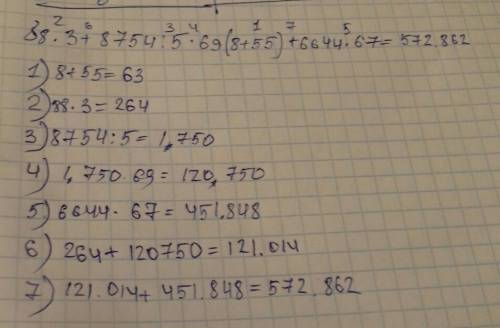 88 · 3 + 8754 : 5 · 69 (8+55) + 6644 · 67 = 572.862
2 6 3 4 1 7 5
1) 8+55= 63
2) 88·3= 264
3) 8754:5= 1,750
4) 1,750·69= 120,750
5) 6644· 67= 451.848
6) 264+ 120750= 121.014
7) 121.014+ 451.848= 572.862